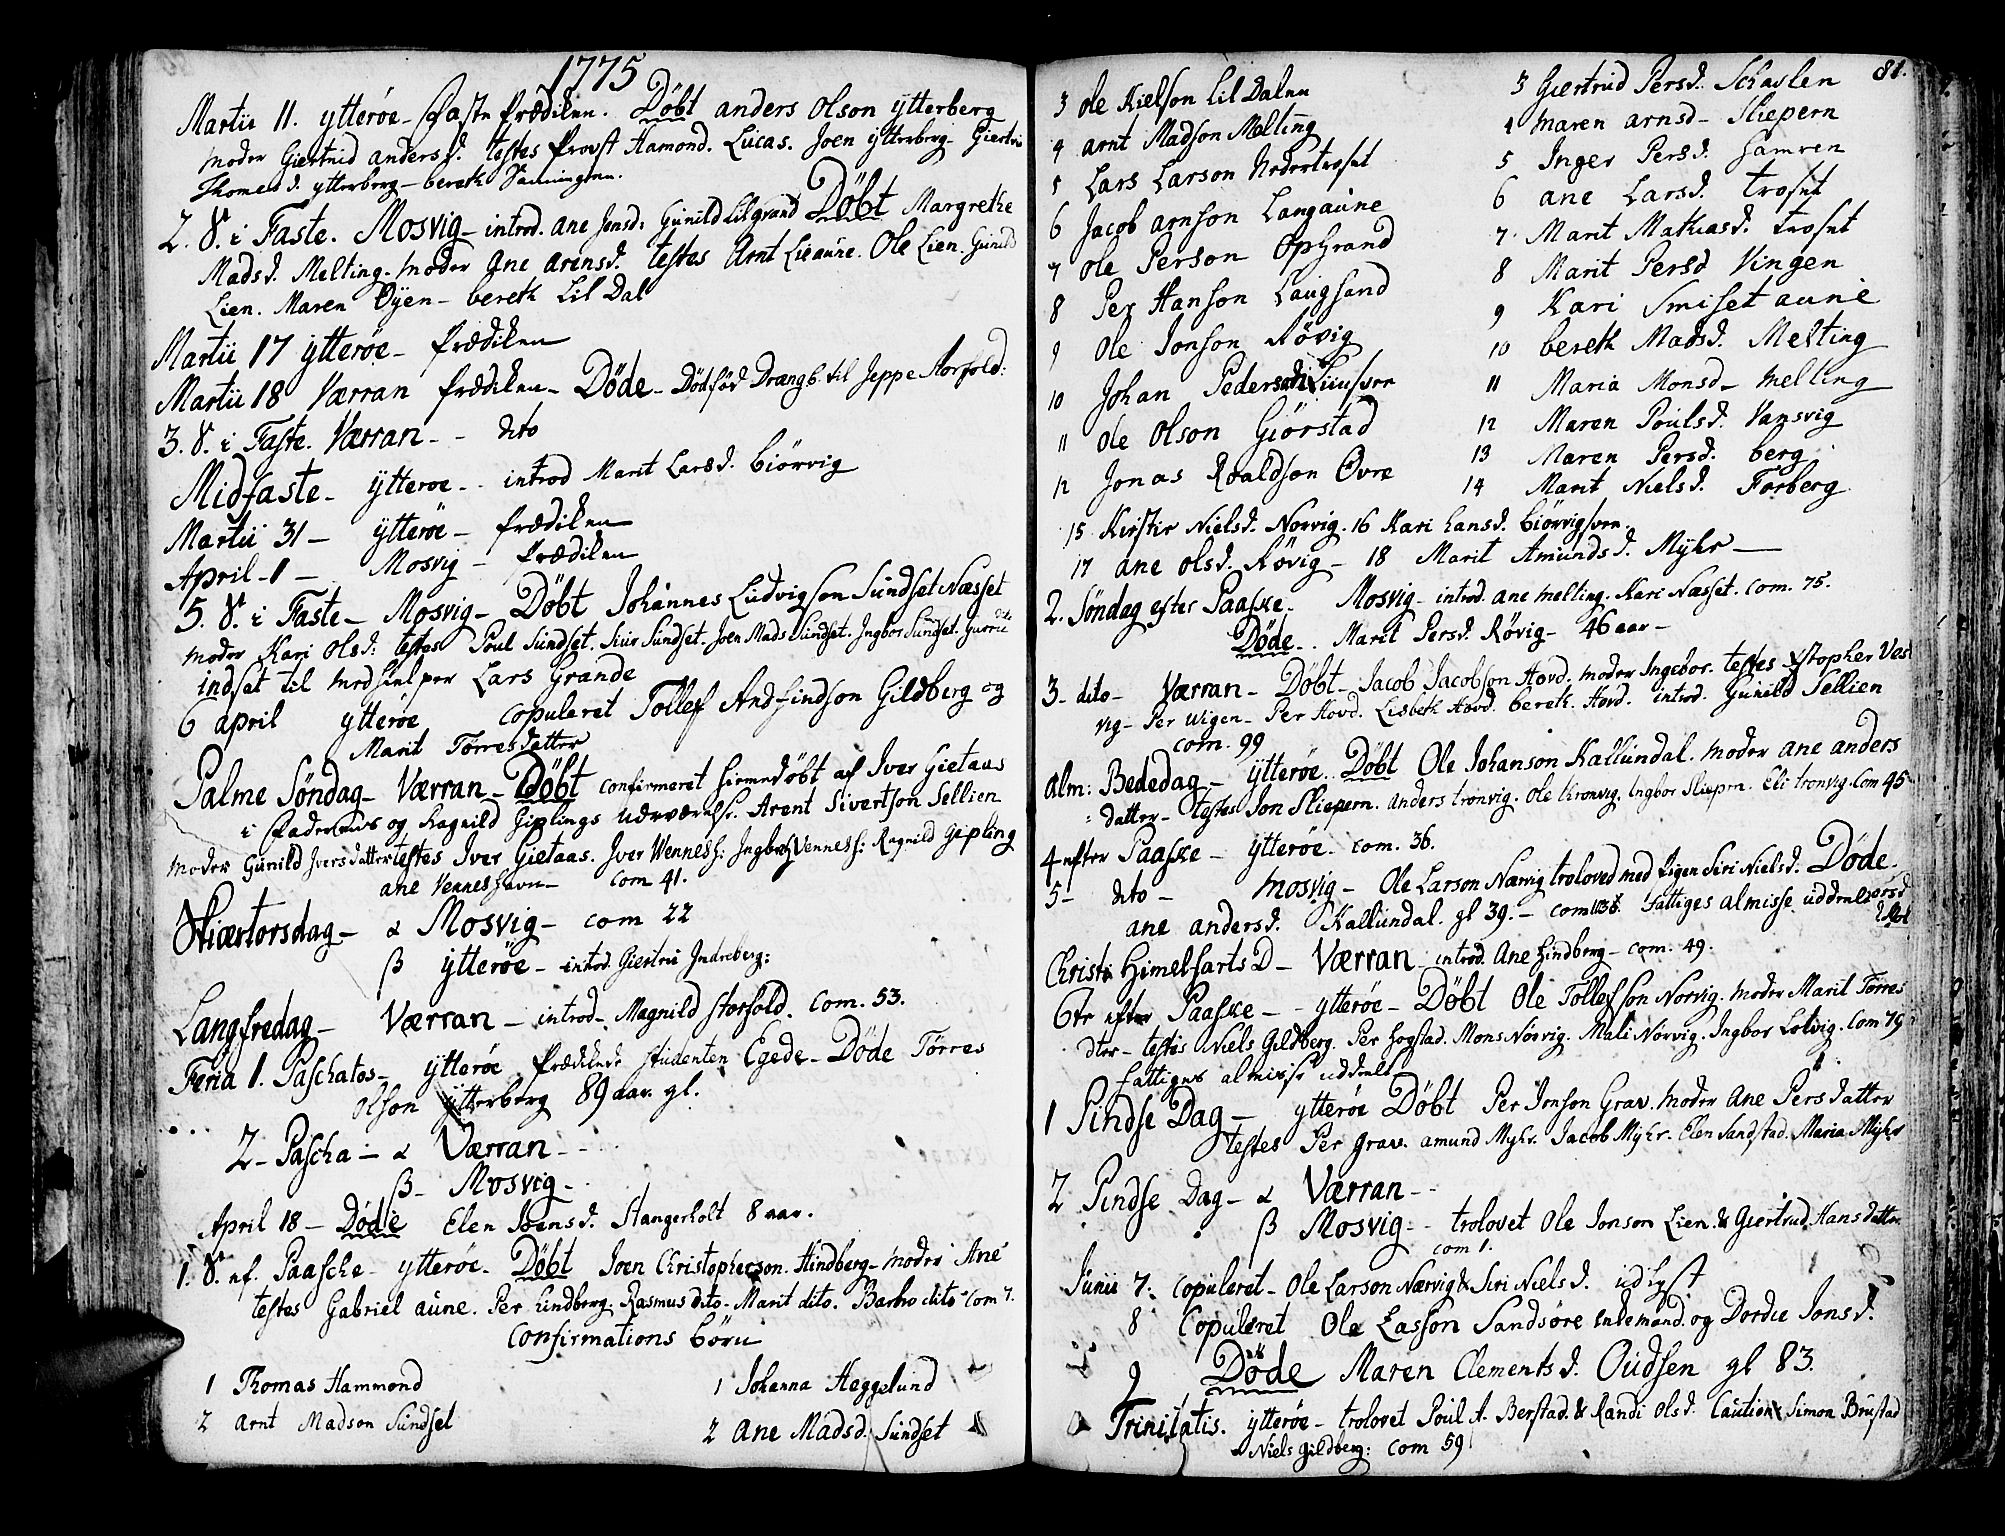 1775
Martii 11. ytterøe - Faste Prædiken. Døbt anders Olson ytterberg
moder Giertrud andersd. testes Provst Hamond. Lucas. Joen ytterberg - Giertru
Thomesd. ytterberg - bereth
2. S. i Faste. Mosvig - introd. ane Jensd: Gunild Lilgrand Døbt Margrethe
Madsd. Melting. moder Ane arensd. testes Arnt Lieaune. Ole Lien. Gunild
Lien. Maren Øyen - bereth Lil Dal
Martii 17 ytterøe - Prædiken
Martii 18 Værran Prædiken - Døde - Dødfød Drangb. til Jeppe Storfold:
3. S. i Faste. Værran - - dito
Midfaste - ytterøe - - introd Marit Larsd. Biørvig
Martii 31 - ytterøe - Prædiken
April - 1 - Mosvig - Prædiken
5. S. i Faste - Mosvig - Døbt Johannes Ludvigson Sundset Næsset
moder Kari Olsd: testes Poul Sundset. Siur Sundset. Joen Mads Sundset. Ingbor Sundset. Gurru dito
indset til medhielper Lars Grande
6 april ytterøe copuleret Tollef Andfindson Gildberg og
Marit Tørresdatter
Palme Søndag - Værran - Døbt confirmeret hiemedøbt af Iver Gietaas
i Faderens og Ragnild Giplings nærværelse. Arent Sivertson Sellien
moder Gunild Iversdatter testes Iver Gietaas. Iver Wennesh: Ingbor Vennesh: Ragnild Gipling
ane Venneshavn - Com 41.
Skiærtorsdag - α Mosvig - com 22
β ytterøe - introd. Giertru Indreberg:
Langfredag - Værran - introd. Magnild Storfold. Com. 53.
Feria 1. Paschatos - ytterøe Prædikede studenten Egede - Døde Tørres
Olson ytterberg 89 aar. gl.
2 - Pascha - α Værran - -
β - Mosvig -
April 18 - Døde Elen Joensd. Stangerholt 8 aar.
1. S. ef. Paasche - ytterøe. Døbt Joen Christopherson. Hindberg - moder Ane
testes Gabriel aune. Per Lindberg. Rasmus dito - Marit dito. Barbro dito - Com 7.
Confirmations børn
1 Thomas Hammond 1 Johanna Heggelund
2 Arnt Madson Sundset 2 Ane Madsd. Sundset
81.
3 Ole Kielson Lil Dalen 3 Giertrud Persd. Schaslen
4 arnt Madson Melting 4 maren arnsd - Sliepern
5 Lars Larson Nedertrøset 5 Inger Persd. Hamren
6 Jacob arnson Langaune 6 ane Larsd. trøset
7 Ole Person Opgrand 7. Marit Mathiasd. trøset
8 Per Hanson Laugsand 8 Marit Persd Vingen
9 Ole Jonson Røvig 9 Kari Smisetaune
10 Johan Pederson 10 bereth Madsd. Melting
11 Ole Olson Giørstad 11 Maria Monsd - melting
12 Jonas Roaldson Øvre 12 Maren Poulsd. Vansvig
13 Maren Persd. berg
14 Marit Nielsd. Forberg
15 Kirstie Nielsd. Norvig. 16 Kari Hansd. Biørvigsven.
17 ane Olsd. Røvig - 18 Marit Amundsd. Myhr -
2. Søndag efter Paaske - Mosvig - introd. ane melting. Kari Næsset. com. 75.
Døde - . Marit Persd. Røvig - 46 aar -
3 - dito - Værran - Døbt - Jacob Jacobson Hovd. moder Ingebor. testes Xstopher Vest
vig - Per wigen - Per Hovd. Lisbeth Hovd. bereth. Hovd. introd. Gunild Sellien
com. 99
alm: Bededag - ytterøe. Døbt Ole Johanson Kallundal. moder ane anders
datter - testes Jon Sliepern. anders tronvig. Ole tronvig. Ingbor Sliepern. Eli tronvig. Com 45
4 efter Paaske - ytterøe. com. 36.
5 - dito - mosvig - Ole Larson Nærvig troloved med Pigen Siri Nielsd. Døde -
ane andersd. Kallundal. gl 39. - com 38. Fattiges almisse uddeelt
Christi Himelfarts D - Værran - introd. Ane Hindberg - com. 49.
6te efter Paaske - - ytterøe - Døbt Ole Tollefson Norvig. moder Marit Tørres
dter - testes Niels Gildberg. Per Hogstad. Mons Nørvig. Mali Nørvig. Ingbor Lotvig. Com 79
Fattiges almisse uddeelt
1 Pindse Dag - ytterøe Døbt Per Jonson Grav. moder Ane Persdatter
testes Per grav. amund Myhr. Jacob Myhr. Elen Sandstad. Maria Myhr
2 Pindse Dag - α Værran - -
β Mosvig - - trolovet Ole Jonson Lien & Giertrud Hansdatter
com 1.
Junii 7. copuleret - Ole Larson Nærvig & Siri Nielsd. udlyst
8 Copuleret Ole Lasson Sandsøre Enkemand. og Dordie Jonsd.
9 Døde Maren Clementsd. Oudsen gl 83.
Trinitatis. ytterøe - trolovet Poul A. Berstad. & Randi Olsd. Caution: Simon Brustad
Niels Gildberg: com 59